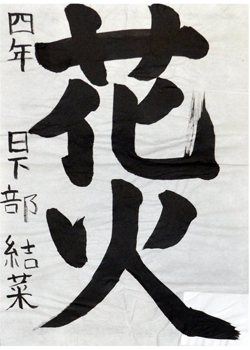 花火
四年 日下部 結菜